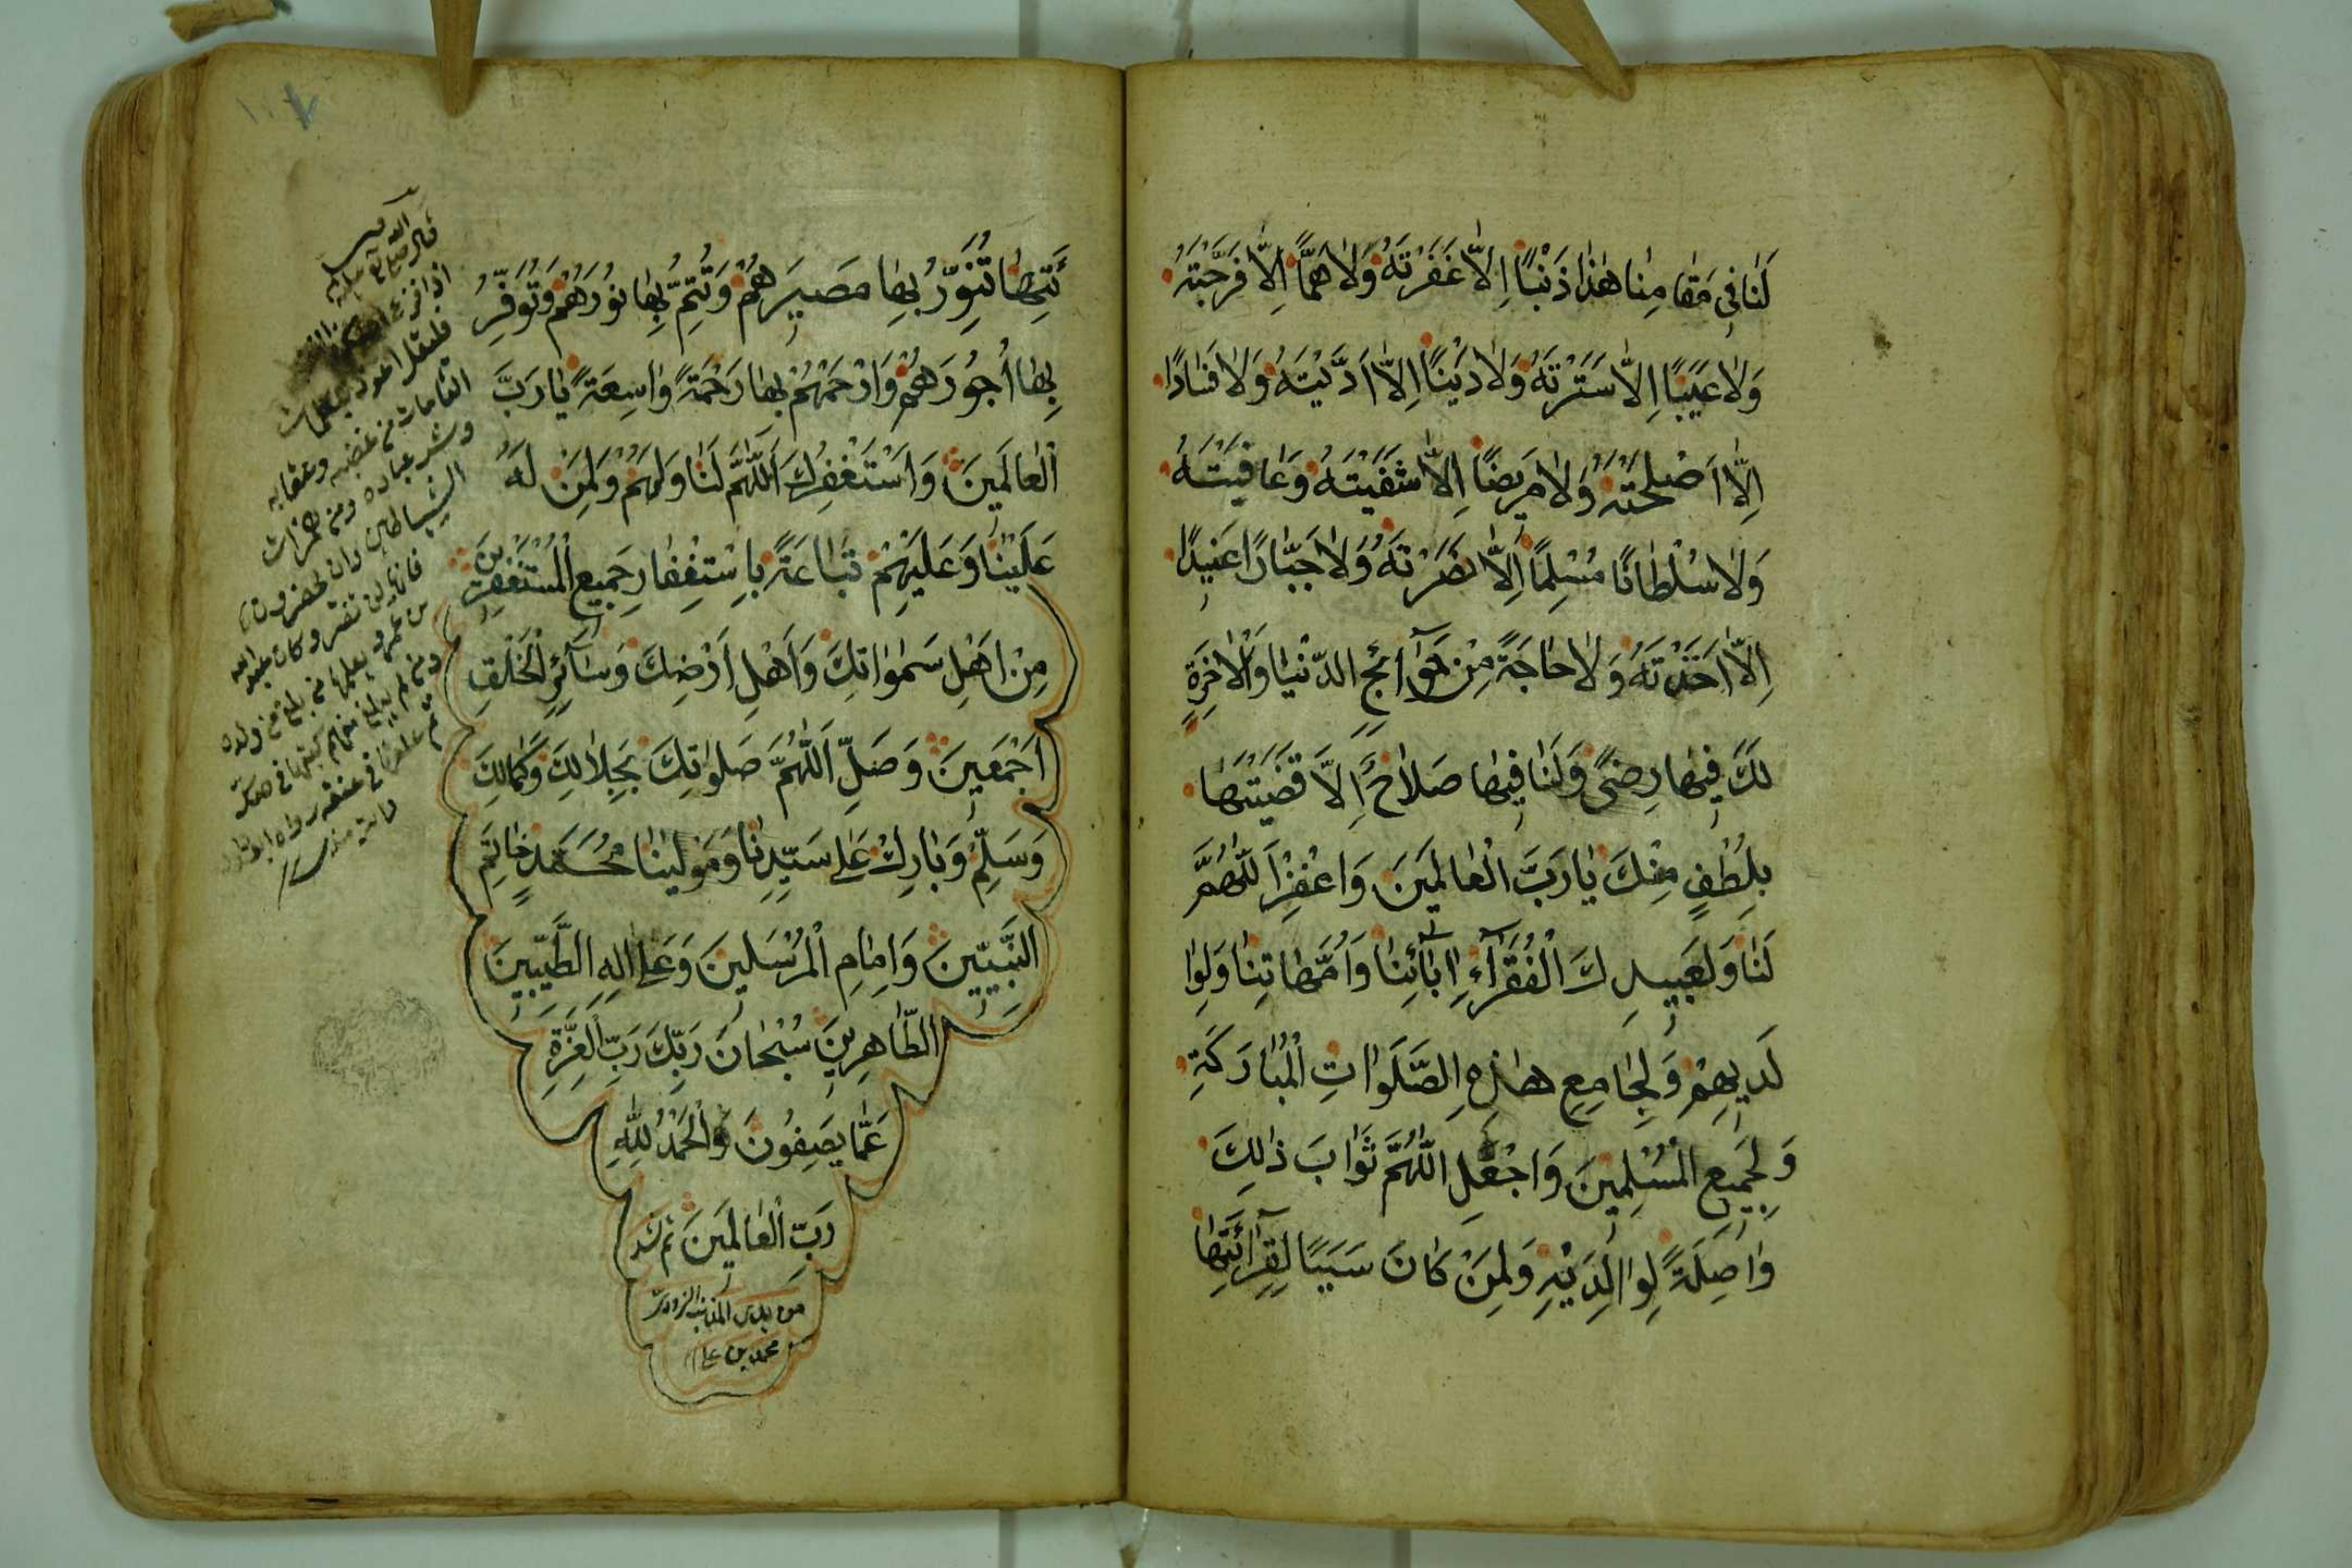 لَنَا فِي مَقَامِنَا هٰذَا ذَنْبًا اِلَّا غَفَرْتَهُ وَلَا هَمًّا اِلَّا فَرَّجْتَهُ
وَلَا عَيْبًا اِلَّا سَتَرْتَهُ وَلَا دَيْنًا اِلَّا اَدَّيْتَهُ وَلَا فَسَادًا
اِلَّا اَصْلَحْتَهُ وَلَا مَرِيضًا اِلَّا شَفَيْتَهُ وَعَافَيْتَهُ
وَلَا سُلْطَانًا مُسْلِمًا اِلَّا نَصَرْتَهُ وَلَا جَبَّارًا عَنِيدًا
اِلَّا اَخَذْتَهُ وَلَا حَاجَةً مِنْ حَوَآئِجِ الدُّنْيَا وَالْاٰخِرَةِ
لَكَ فِيهَا رِضًى وَلَنَا فِيهَا صَلَاحٌ اِلَّا قَضَيْتَهَا
بِلُطْفٍ مِنْكَ يَا رَبَّ الْعَالَمِينَ وَاغْفِرْ اَللّٰهُمَّ
لَنَا وَلِعَبِيدِكَ الْفُقَرَآءِ اٰبَآئِنَا وَاُمَّهَاتِنَا وَلِوَا
لَدِيهِمْ وَلِجَامِعِ هٰذِهِ الصَّلَوَاتِ الْمُبَارَكَةِ
وَلِجَمِيعِ الْمُسْلِمِينَ وَاجْعَلِ اللّٰهُمَّ ثَوَابَ ذٰلِكَ
وَاصِلَةً لِوَالِدَيْهِ وَلِمَنْ كَانَ سَبَبًا لِقِرَآئَتِهَا
ئَتِهَا تُنَوِّرُ بِهَا مَصِيرَهُمْ وَتُتِمُّ بِهَا نُورَهُمْ وَتُوَفِّرُ
بِهَا اُجُورَهُمْ وَارْحَمْهُمْ بِهَا رَحْمَةً وَاسِعَةً يَا رَبَّ
الْعَالَمِينَ وَاَسْتَغْفِرُكَ اَللّٰهُمَّ لَنَا وَلَهُمْ وَلِمَنْ لَهُ
عَلَيْنَا وَعَلَيْهِمْ تَبَاعَةً بِاسْتِغْفَارِ جَمِيعِ الْمُسْتَغْفِرِينَ
مِنْ اَهْلِ سَمٰوَاتِكَ وَاَهْلِ اَرْضِكَ وَسَآئِرِ الْخَلْقِ
اَجْمَعِينَ وَصَلِّ اَللّٰهُمَّ صَلَوٰتِكَ بِجَلَالِكَ وَكَمَالِكَ
وَسَلِّمْ وَبَارِكْ عَلٰى سَيِّدِنَا وَمَوْلٰينَا مُحَمَّدٍ خَاتَمِ
النَّبِيِّينَ وَاِمَامِ الْمُرْسَلِينَ وَعَلٰى اٰلِهِ الطَّيِّبِينَ
الطَّاهِرِينَ سُبْحَانَ رَبِّكَ رَبِّ الْعِزَّةِ
عَمَّا يَصِفُونَ وَالْحَمْدُ لِلّٰهِ
رَبِّ الْعَالَمِينَ
محمد بن علي
اذا فزع احدكم
فليقل اعوذ بكلمات
التامات من غضبه وعقابه
وشر عباده ومن همزات
الشياطين وان يحضرون
فانها لن تضره وكان عبد الله
بن عمرو يعلمها من بلغ من ولده
ومن لم يبلغ منهم كتبها في صك
ثم علقها في عنقه رواه